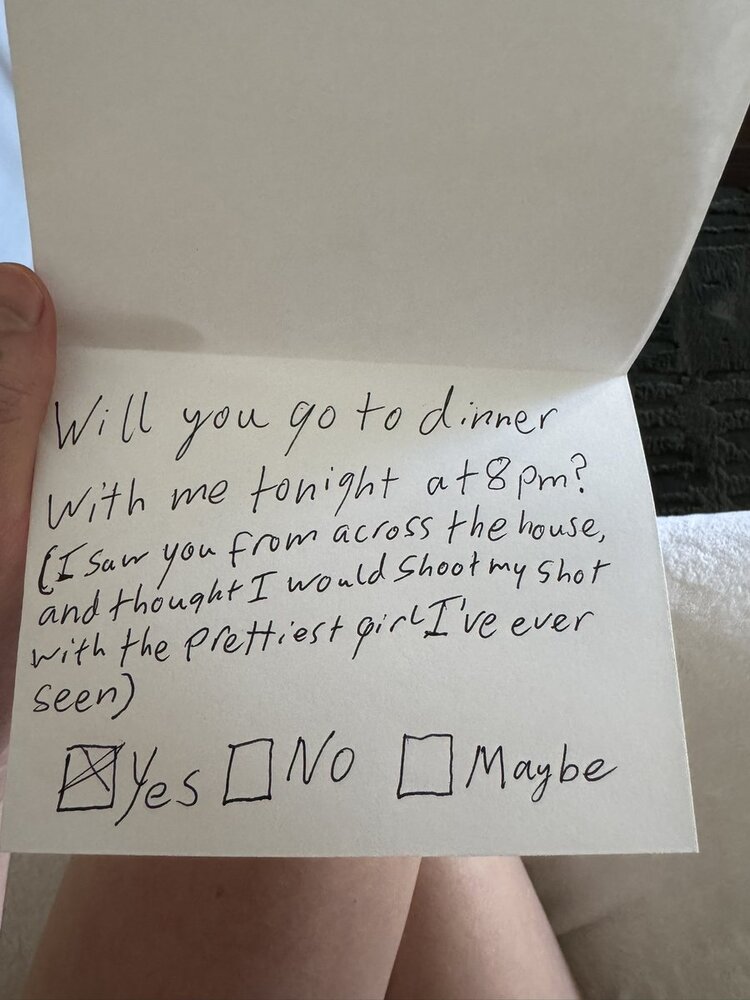 Will you go to dinner
With me tonight at 8pm?
(I saw you from across the house,
and thought I would shoot my shot
with the prettiest girl I've ever
seen)
Yes No Maybe